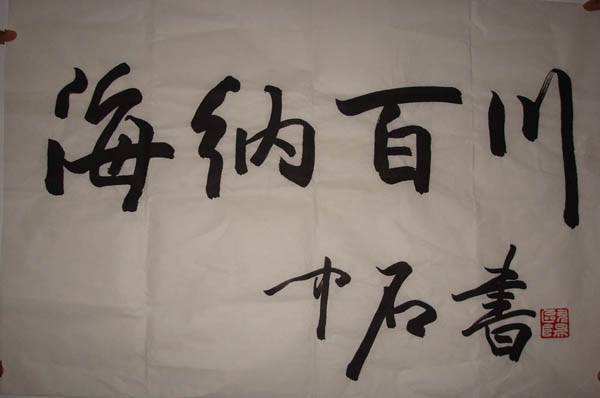 海纳百川
中石書